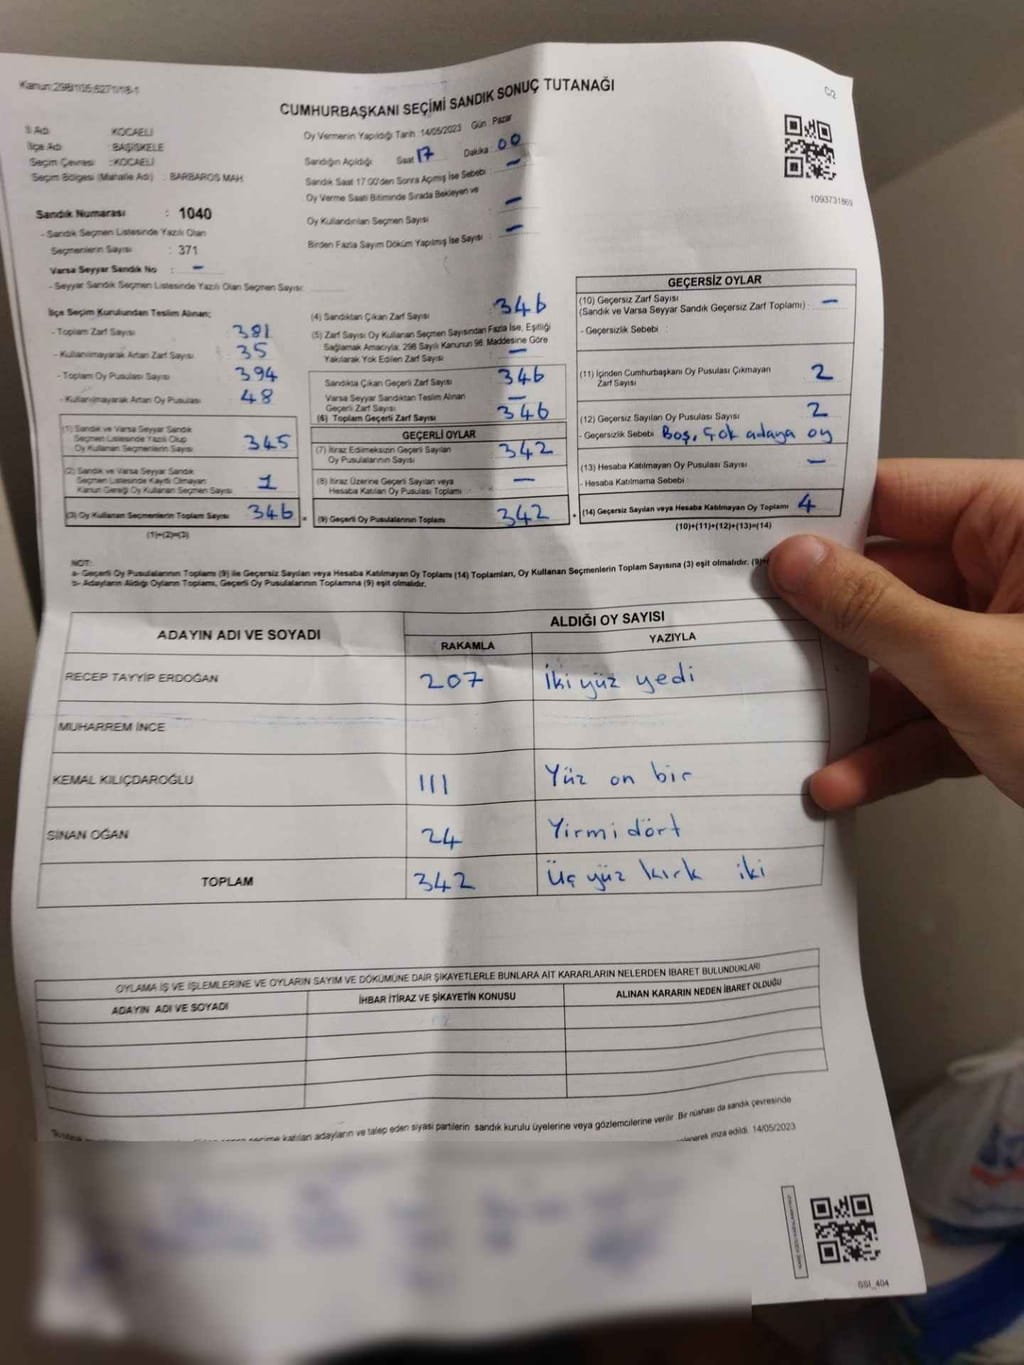 Kanun:298/105;6271/18-1
CUMHURBAŞKANI SEÇİMİ SANDIK SONUÇ TUTANAĞI
C/2
İl Adı KOCAELİ
İlçe Adı : BAŞİSKELE
Seçim Çevresi : KOCAELİ
Seçim Bölgesi (Mahalle Adı) : BARBAROS MAH.
Sandık Numarası : 1040
- Sandık Seçmen Listesinde Yazılı Olan
Seçmenlerin Sayısı : 371
Varsa Seyyar Sandık No : -
- Seyyar Sandık Seçmen Listesinde Yazılı Olan Seçmen Sayısı:
Oy Vermenin Yapıldığı Tarih : 14/05/2023 Gün Pazar
Sandığın Açıldığı Saat 17 Dakika : 00
Sandık Saat 17.00'den Sonra Açılmış İse Sebebi : -
Oy Verme Saati Bitiminde Sırada Bekleyen ve
Oy Kullandırılan Seçmen Sayısı -
Birden Fazla Sayım Döküm Yapılmış İse Sayısı -
1093731869
İlçe Seçim Kurulundan Teslim Alınan;
- Toplam Zarf Sayısı 381
- Kullanılmayarak Artan Zarf Sayısı 35
- Toplam Oy Pusulası Sayısı 394
- Kullanılmayarak Artan Oy Pusulası 48
(1) Sandık ve Varsa Seyyar Sandık
Seçmen Listesinde Yazılı Olup
Oy Kullanan Seçmenlerin Sayısı 345
(2) Sandık ve Varsa Seyyar Sandık
Seçmen Listesinde Kayıtlı Olmayan
Kanun Gereği Oy Kullanan Seçmen Sayısı 1
(3) Oy Kullanan Seçmenlerin Toplam Sayısı 346
(1)+(2)=(3)
(4) Sandıktan Çıkan Zarf Sayısı 346
(5) Zarf Sayısı Oy Kullanan Seçmen Sayısından Fazla İse, Eşitliği
Sağlamak Amacıyla, 298 Sayılı Kanunun 98. Maddesine Göre
Yakılarak Yok Edilen Zarf Sayısı -
Sandıkta Çıkan Geçerli Zarf Sayısı 346
Varsa Seyyar Sandıktan Teslim Alınan
Geçerli Zarf Sayısı -
(6) Toplam Geçerli Zarf Sayısı 346
GEÇERLİ OYLAR
(7) İtiraz Edilmeksizin Geçerli Sayılan
Oy Pusulalarının Sayısı 342
(8) İtiraz Üzerine Geçerli Sayılan veya
Hesaba Katılan Oy Pusulası Toplamı -
(9) Geçerli Oy Pusulalarının Toplamı 342
GEÇERSİZ OYLAR
(10) Geçersiz Zarf Sayısı
(Sandık ve Varsa Seyyar Sandık Geçersiz Zarf Toplamı) : -
- Geçersizlik Sebebi :
(11) İçinden Cumhurbaşkanı Oy Pusulası Çıkmayan
Zarf Sayısı 2
(12) Geçersiz Sayılan Oy Pusulası Sayısı 2
- Geçersizlik Sebebi Boş, Çok adaya oy
(13) Hesaba Katılmayan Oy Pusulası Sayısı -
- Hesaba Katılmama Sebebi :
(14) Geçersiz Sayılan veya Hesaba Katılmayan Oy Toplamı 4
(10)+(11)+(12)+(13)=(14)
NOT:
a- Geçerli Oy Pusulalarının Toplamı (9) ile Geçersiz Sayılan veya Hesaba Katılmayan Oy Toplamı (14) Toplamları, Oy Kullanan Seçmenlerin Toplam Sayısına (3) eşit olmalıdır. (9)+
b- Adayların Aldığı Oyların Toplamı, Geçerli Oy Pusulalarının Toplamına (9) eşit olmalıdır.
ADAYIN ADI VE SOYADI ALDIĞI OY SAYISI
RAKAMLA YAZIYLA
RECEP TAYYİP ERDOĞAN 207 İki yüz yedi
MUHARREM İNCE
KEMAL KILIÇDAROĞLU 111 Yüz on bir
SİNAN OĞAN 24 Yirmi dört
TOPLAM 342 Üç yüz kırk iki
OYLAMA İŞ VE İŞLEMLERİNE VE OYLARIN SAYIM VE DÖKÜMÜNE DAİR ŞİKAYETLERLE BUNLARA AİT KARARLARIN NELERDEN İBARET BULUNDUKLARI
ADAYIN ADI VE SOYADI İHBAR İTİRAZ VE ŞİKAYETİN KONUSU ALINAN KARARIN NEDEN İBARET OLDUĞU
seçime katılan adayların ve talep eden siyasi partilerin sandık kurulu üyelerine veya gözlemcilerine verilir. Bir nüshası da sandık çevresinde
imza edildi. 14/05/2023
SSI_404